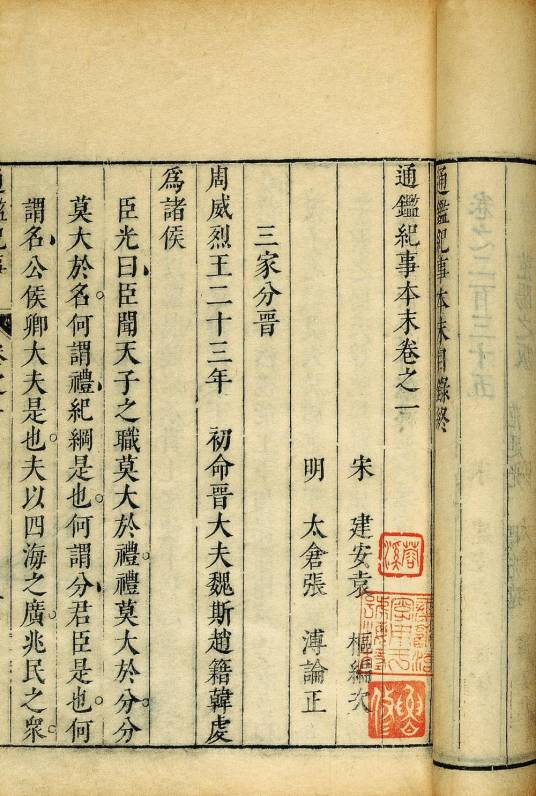 通鑑紀事本末目錄終
通鑑紀事本末卷之一
宋 建安袁 樞編次
明 太倉張 溥論正
三家分晉
周威烈王二十三年 初命晉大夫魏斯趙籍韓虔
為諸侯
臣光曰臣聞天子之職莫大於禮禮莫大於分分
莫大於名何謂禮紀綱是也何謂分君臣是也何
謂名公侯卿大夫是也夫以四海之廣兆民之衆
通鑑紀事
蓉溪